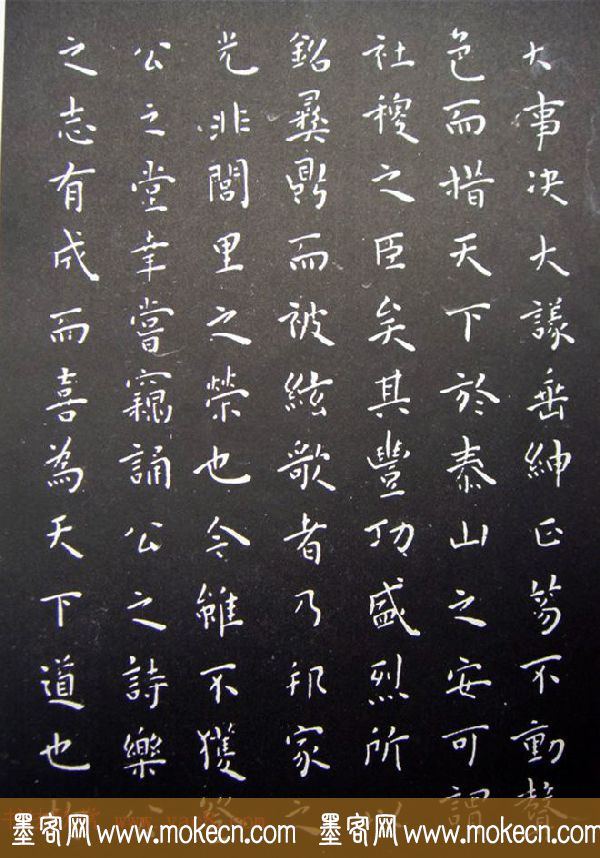 大事决大議垂紳正笏不動聲
色而措天下於泰山之安可謂
社稷之臣矣其豐功盛烈所以
銘彝鼎而被絃歌者乃邦家之
光非閭里之榮也今雖不獲登
公之堂幸嘗竊誦公之詩樂公
之志有成而喜為天下道也於
墨客网 www.mokecn.com 墨客网 www.mokecn.com